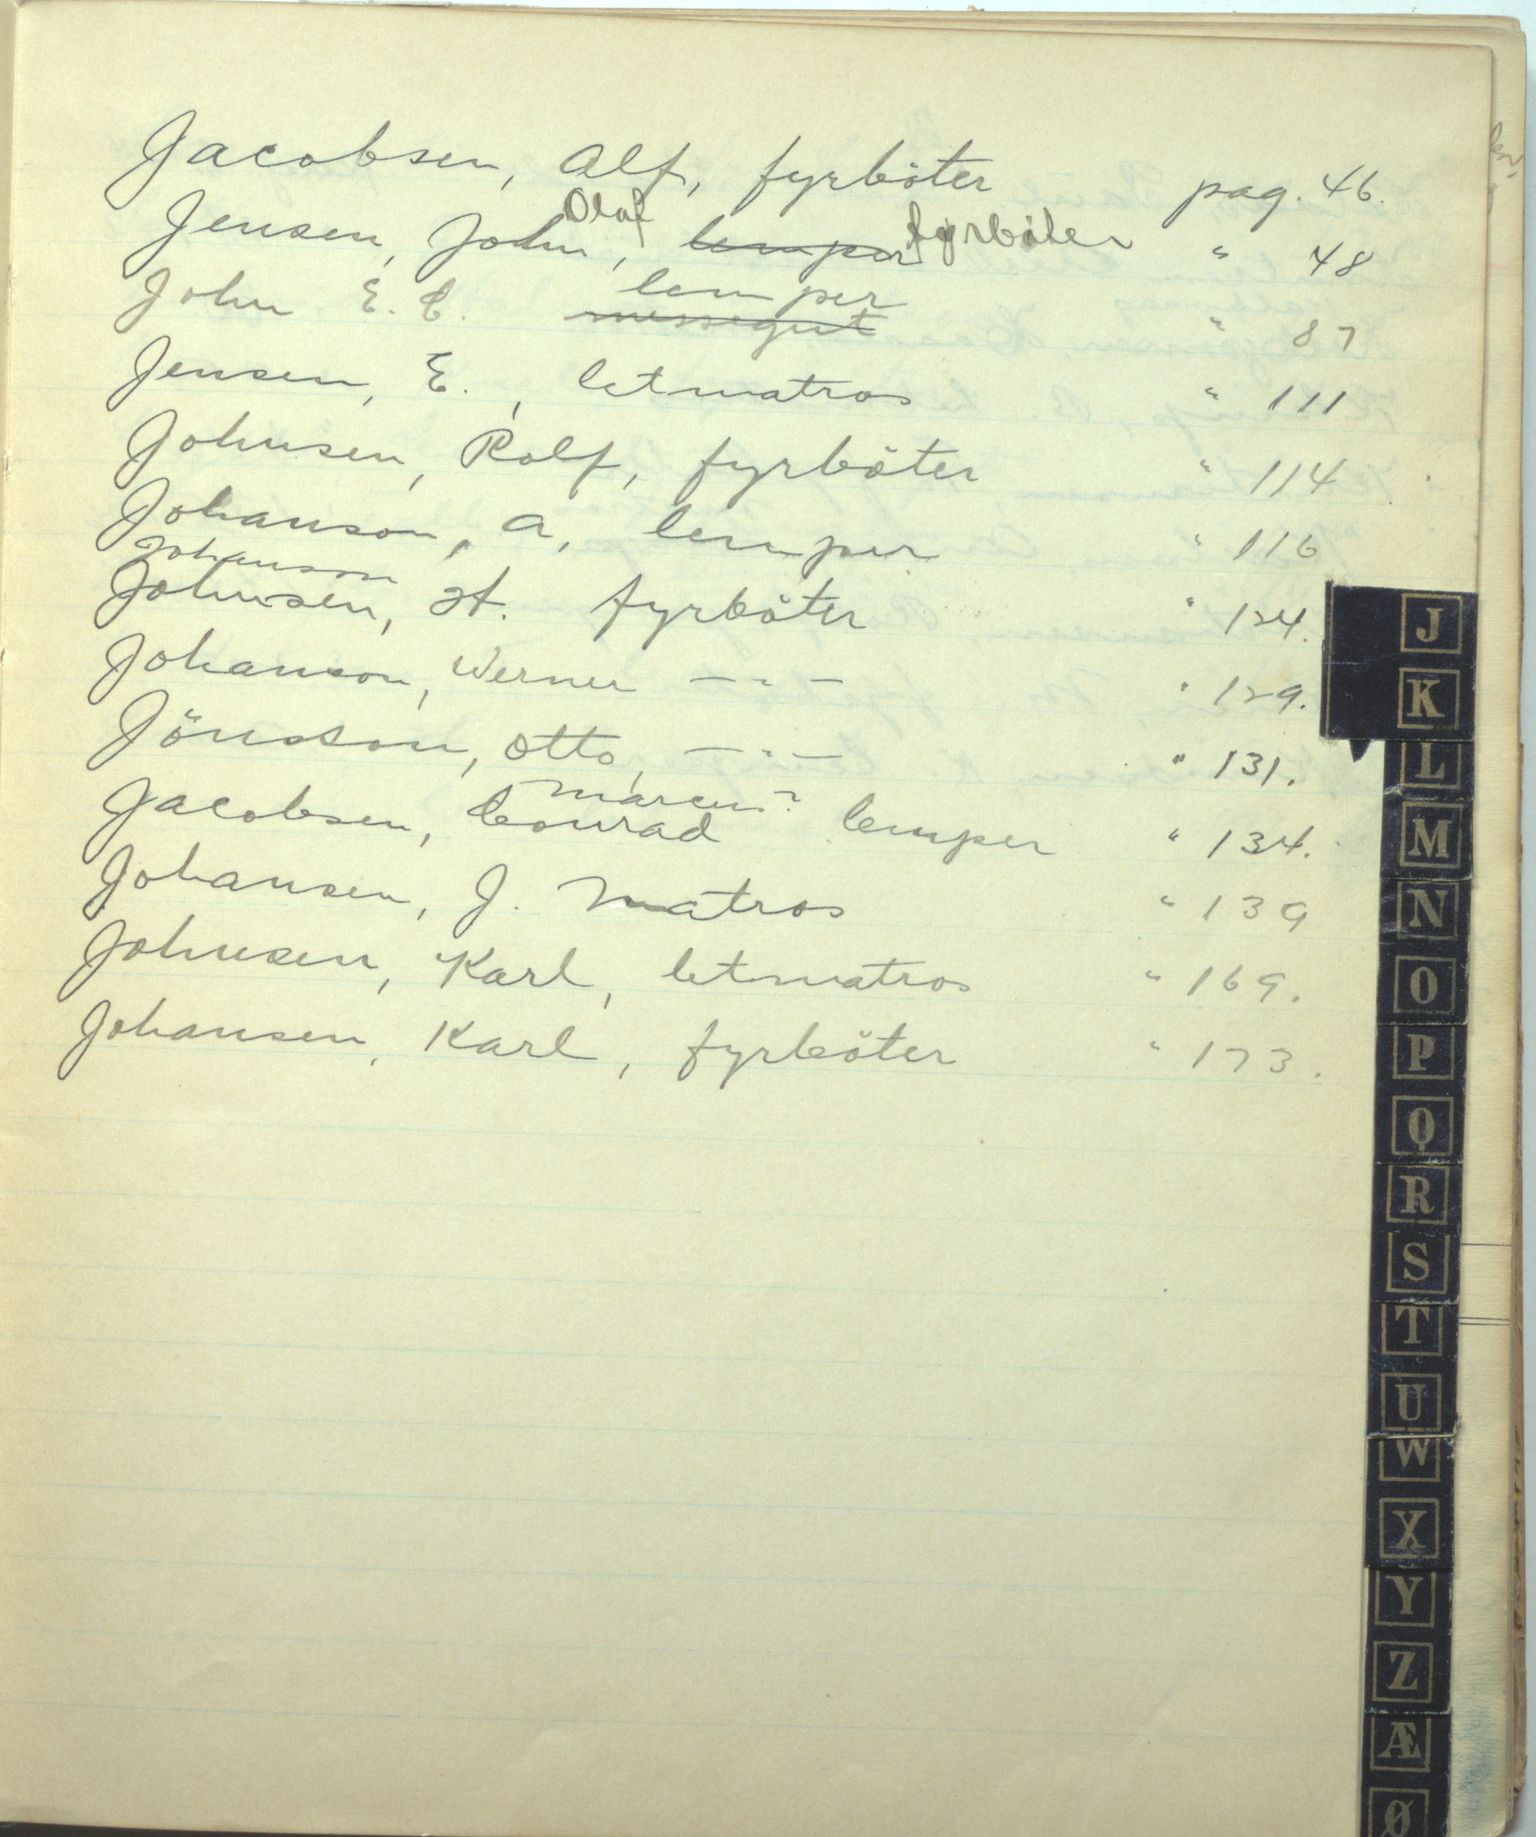 Jacobsen, Alf, fyrböter pag. 46.
Olaf
Jensen, John, lemper fyrböter " 48
lemper
John E. C. messegut " 87
Jensen, E., letmatros " 111
Johnsen, Rolf, fyrböter " 114
Johanson, A, lemper " 116
Johanson
Johnsen, St. fyrböter " 124.
Johanson, Werner — " — " 129.
Jönsson, Otto, — " — " 131.
Marcus?
Jacobsen, Conrad lemper " 134.
Johansen, J. Matros " 139
Johnsen, Karl, letmatros " 169.
Johansen, Karl, fyrböter " 173.
J
K
L
M
N
O
P
Q
R
S
T
U
W
X
Y
Z
Æ
Ø